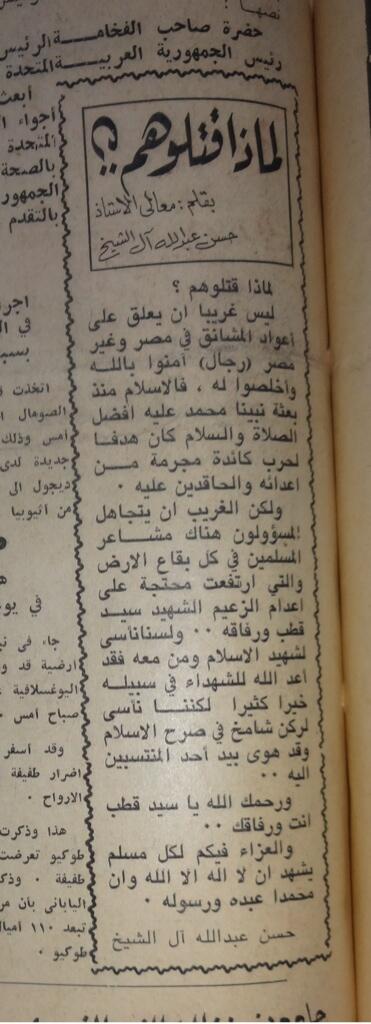 نصها :
حضرة صاحب الفخامة الرئيس
رئيس الجمهورية العربية المتحدة
لماذا قتلوهم ؟؟
بقلم : معالي الاستاذ
حسن عبدالله آل الشيخ
لماذا قتلوهم ؟
ليس غريبا ان يعلق على
أعواد المشانق في مصر وغير
مصر (رجال) آمنوا بالله
وأخلصوا له ، فالاسلام منذ
بعثة نبينا محمد عليه افضل
الصلاة والسلام كان هدفا
لحرب كائدة مجرمة من
اعدائه والحاقدين عليه ٠
ولكن الغريب ان يتجاهل
المسؤولون هناك مشاعر
المسلمين في كل بقاع الارض
والتي ارتفعت محتجة على
اعدام الزعيم الشهيد سيد
قطب ورفاقه ٠٠ ولسنا نأسى
لشهيد الاسلام ومن معه فقد
أعد الله للشهداء في سبيله
خيرا كثيرا لكننا نأسى
لركن شامخ في صرح الاسلام
وقد هوى بيد أحد المنتسبين
اليه ٠٠
ورحمك الله يا سيد قطب
انت ورفاقك ٠٠
والعزاء فيكم لكل مسلم
يشهد ان لا اله الا الله وان
محمدا عبده ورسوله ٠
حسن عبدالله آل الشيخ
أبعث
أجواء
المتحدة
بالصحة
الجمهور
بالتقدم
اجر
في
بسبب
اتخذت
الصومال
أمس وذلك
جديدة لدى
ديجول الى
من اثيوبيا
في يو
جاء في
ارضية قد
اليوغسلافية
صباح أمس ٠
وقد أسفر
اضرار طفيفة
الارواح ٠
هذا وذكرت
طوكيو تعرضت
طفيفة ٠ وذكر
الياباني بان مر
تبعد ١١٠ أميال
طوكيو ٠